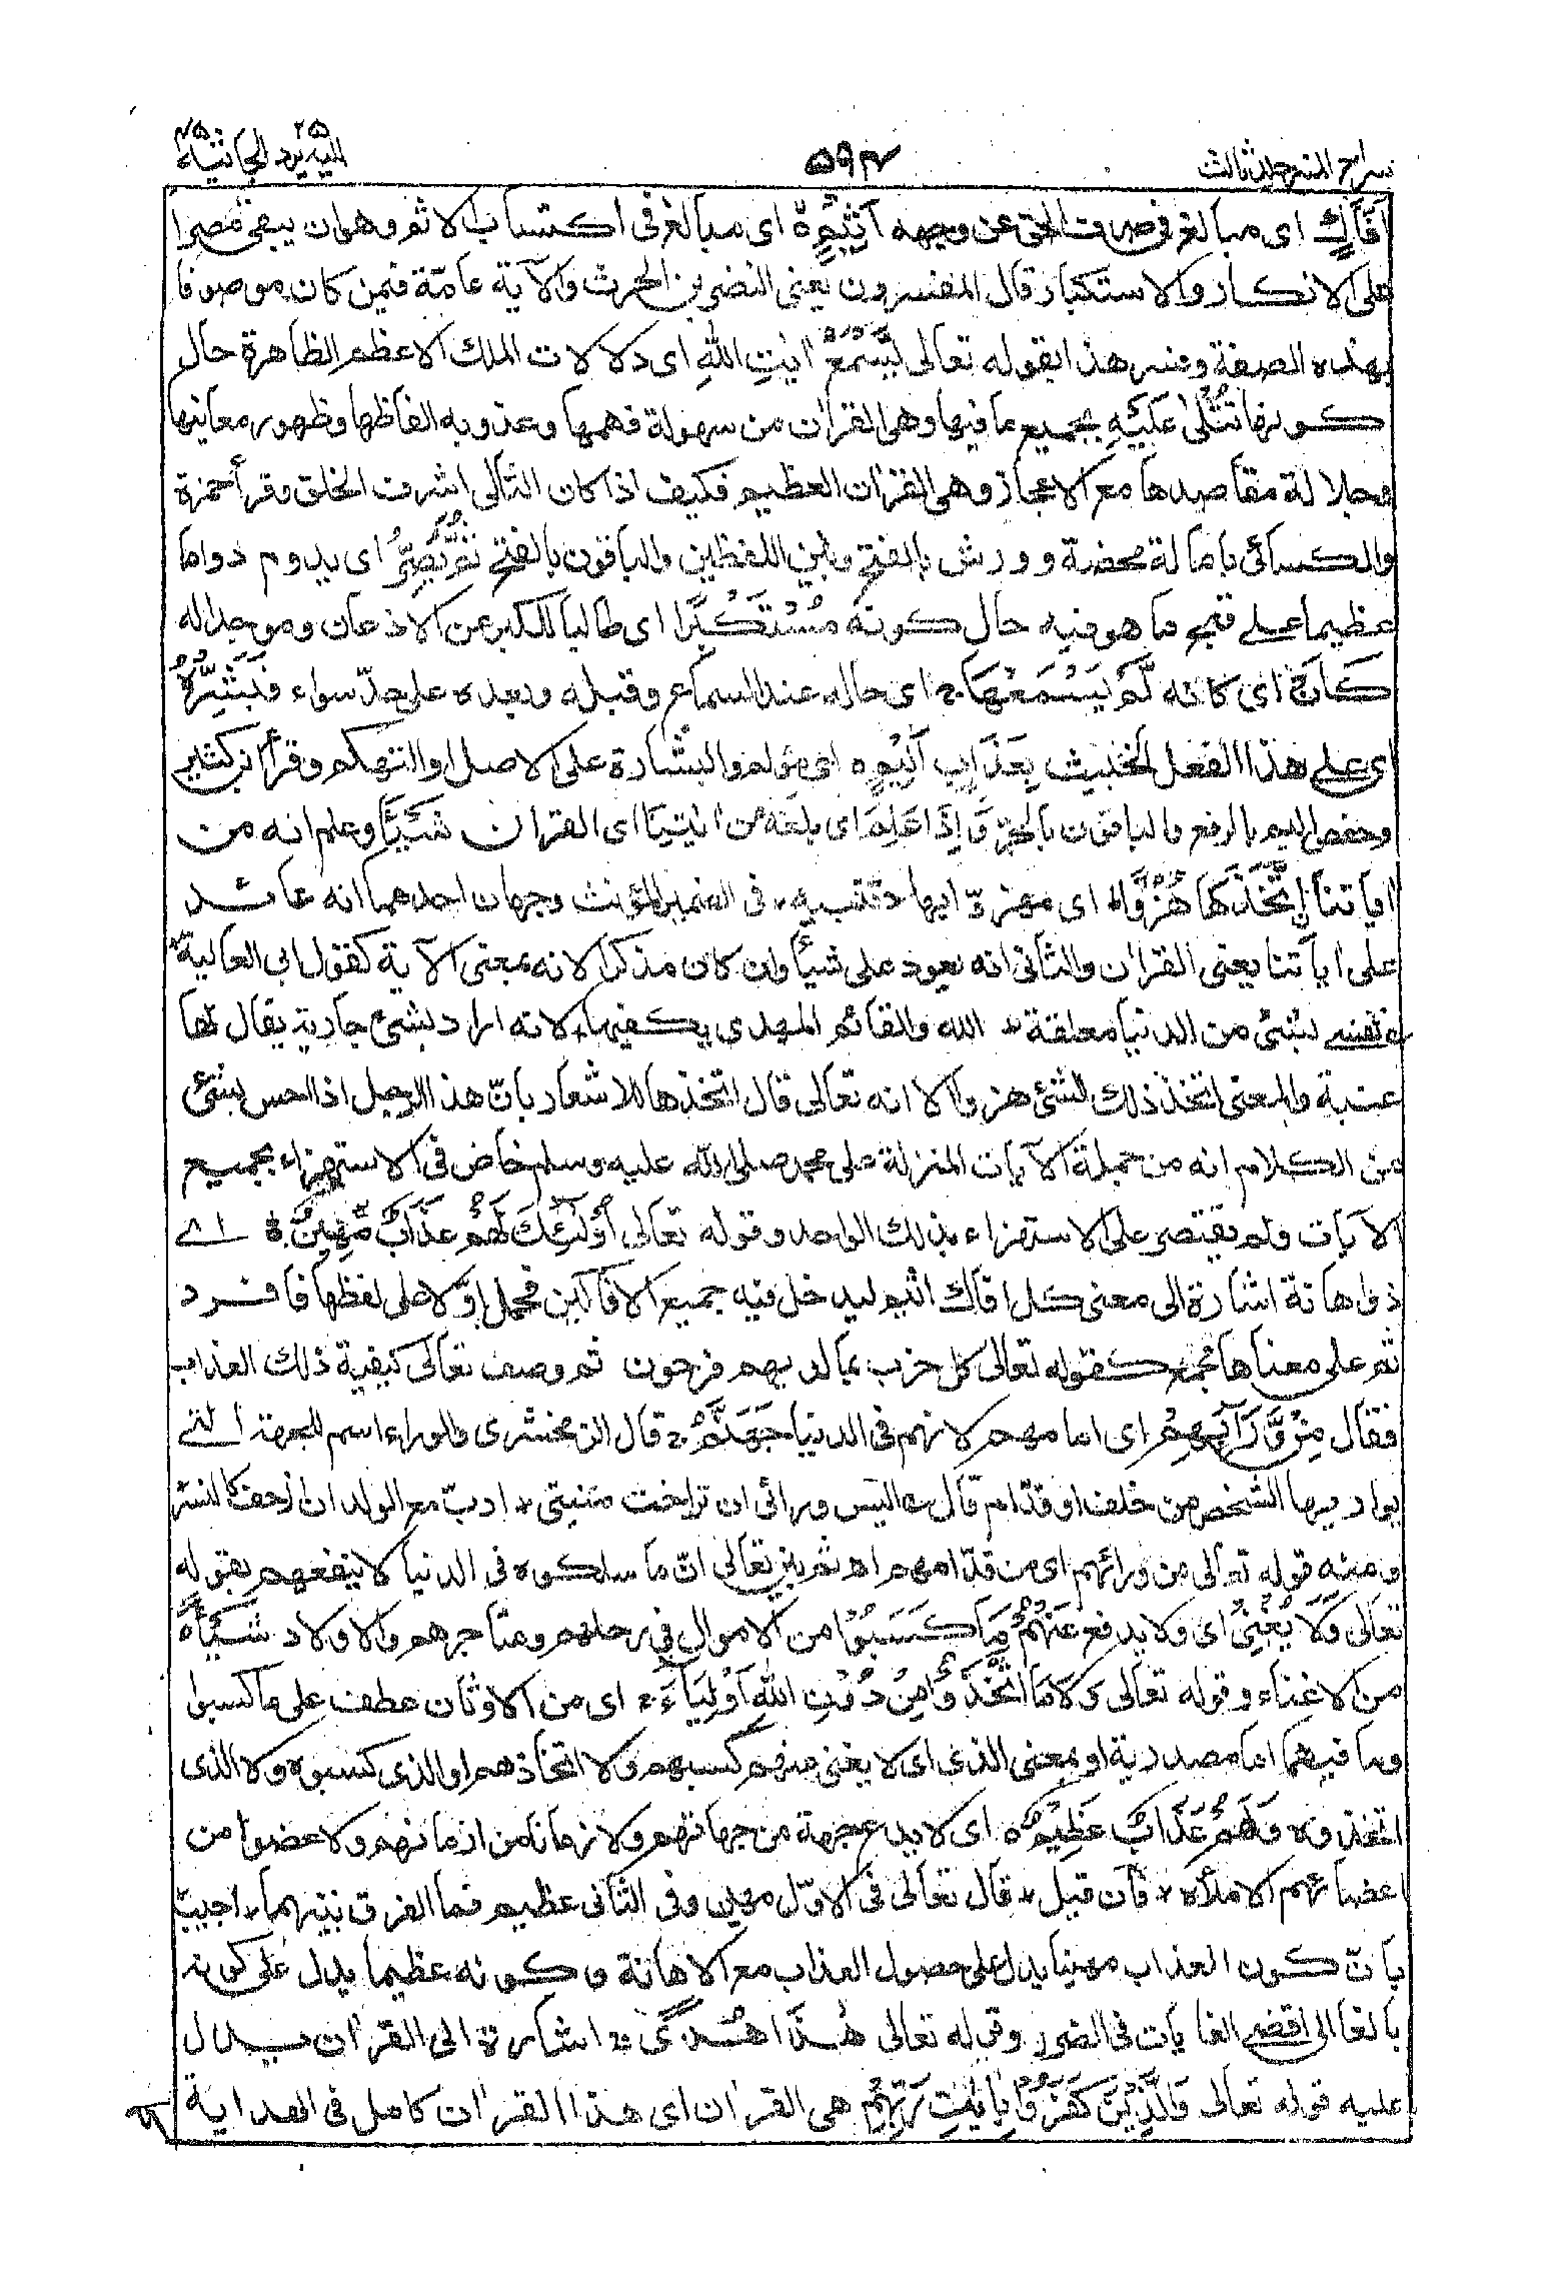 سراج المنير جلد ثالث
۵۹۴
اليه يرد ۲۵ الجاثية ۴۵
اَفَّاكٍ اى مبالغ فى صرف الحق عن وجهه اَثِيْمٍ ۙ اى مبالغ فى اكتساب الاثم وهوان يبقى مصرا
على الانكار والاستكبار قال المفسرون يعنى النضر بن الحرث والآية عامّة فيمن كان موصوفا
بهذه الصفة وفسر هذا بقوله تعالى يَّسْمَعُ اٰيٰتِ اللهِ اى دلالات الملك الاعظم الظاهرة حال
كونها تُتْلٰى عَلَيْهِ بجميع ما فيها وهى القراٰن من سهولة فهمها وعذوبه الفاظها وظهور معانيها
وجلالة مقاصدها مع الاعجاز وهى القراٰن العظيم فكيف اذا كان التالى اشرف الخلق وقرأ حمزة
والكسائى بامالة محضة وورش بالفتح وبين اللفظين والباقون بالفتح ثُمَّ يُصِرُّ اى يدوم دواما
عظيما على قبح ما هو فيه حال كونه مُسْتَكْبِرًا اى طالبا للكبر عن الاذعان وموجدا له
كَاَنْ اى كانه لَّمْ يَسْمَعْهَا ج اى حاله عند السماع وقبله وبعده على حدّ سواء فَبَشِّرْهُ
اى على هذا الفعل الخبيث بِعَذَابٍ اَلِيْمٍ ه اى مؤلم والبشارة على الاصل او التهكم وقرأ ابن كثير
وحفص اليم بالرفع والباقون بالجرّ وَاِذَا عَلِمَ اى بلغه مِنْ اٰيٰتِنَا اى القراٰن شَيْـًٔا وعلم انه من
اٰياتنا اِتَّخَذَهَا هُزُوًا ط اى مهزوّا بها \* تنبيه \* فى الضمير المؤنث وجهان احدهما انه عائد
على اٰياتنا يعنى القراٰن والثانى انه يعود على شيأ وان كان مذكرا لانه بمعنى الآية كقول ابى العالية \*
ه نفسى بشئ من الدنيا معلقة \* الله والقائم المهدى يكفيها \* لانه اراد بشئ جارية يقال لها
عتبة والمعنى اتخذ ذلك الشئ هزوا الا انه تعالى قال اتخذها للاشعار بانّ هذا الرجل اذا احس بشئ
من الكلام انه من جملة الآيات المنزلة على محمد صلى الله عليه وسلم خاض فى الاستهزاء بجميع
الآيات ولم يقتصر على الاستهزاء بذلك الواحد وقوله تعالى اُولٰٓئِكَ لَهُمْ عَذَابٌ مُّهِيْنٌ ط اے
ذو اهانة اشارة الى معنى كل افاك اثيم ليدخل فيه جميع الافاكين فحمل اوّلا على لفظها فافرد
ثم على معناها فجمع كقوله تعالى كل حزب بما لديهم فرحون ثم وصف تعالى كيفية ذلك العذاب
فقال مِنْ وَّرَآئِهِمْ اى امامهم لانهم فى الدنيا جَهَنَّمُ ج قال الزمخشرى والوراء اسم للجهة التى
يواريها الشخص من خلف او قدّام قال ه اليس ورائى ان تراخت منيتى \* ادبّ مع الولدان ازحف كالنسر
ومنه قوله تعالى من ورائهم اى من قدّامهم اه ثم بين تعالى انّ ما سلكوه فى الدنيا لا ينفعهم بقوله
تعالى وَلَا يُغْنِىْ اى ولا يدفع عَنْهُمْ مَّا كَسَبُوْا من الاموال فى رحلهم ومتاجرهم والاولاد شَيْـًٔا
من الاغناء وقوله تعالى وَلَا مَا اتَّخَذُوْا مِنْ دُوْنِ اللهِ اَوْلِيَآءَ ج اى من الاوثان عطف على ما كسبوا
وما فيهما اما مصدرية او بمعنى الذى اى لا يغنى عنهم كسبهم ولا اتخاذهم او الذى كسبوه ولا الذى
اتخذوه وَلَهُمْ عَذَابٌ عَظِيْمٌ ه اى لا يدع جهة من جهاتهم ولا زمانا من ازمانهم ولا عضوا من
اعضائهم الا ملأه \* فان قيل \* قال تعالى فى الاوّل مهين وفى الثانى عظيم فما الفرق بينهما \* اجيب
بانّ كون العذاب مهينا يدل على حصول العذاب مع الاهانة وكونه عظيما يدل على كونه
بالغا الى اقصى الغايات فى الضرر وقوله تعالى هٰذَا هُدًى ج اشارة الى القراٰن يدل
عليه قوله تعالى وَالَّذِيْنَ كَفَرُوْا بِاٰيٰتِ رَبِّهِمْ هى القراٰن اى هذا القراٰن كامل فى الهداية